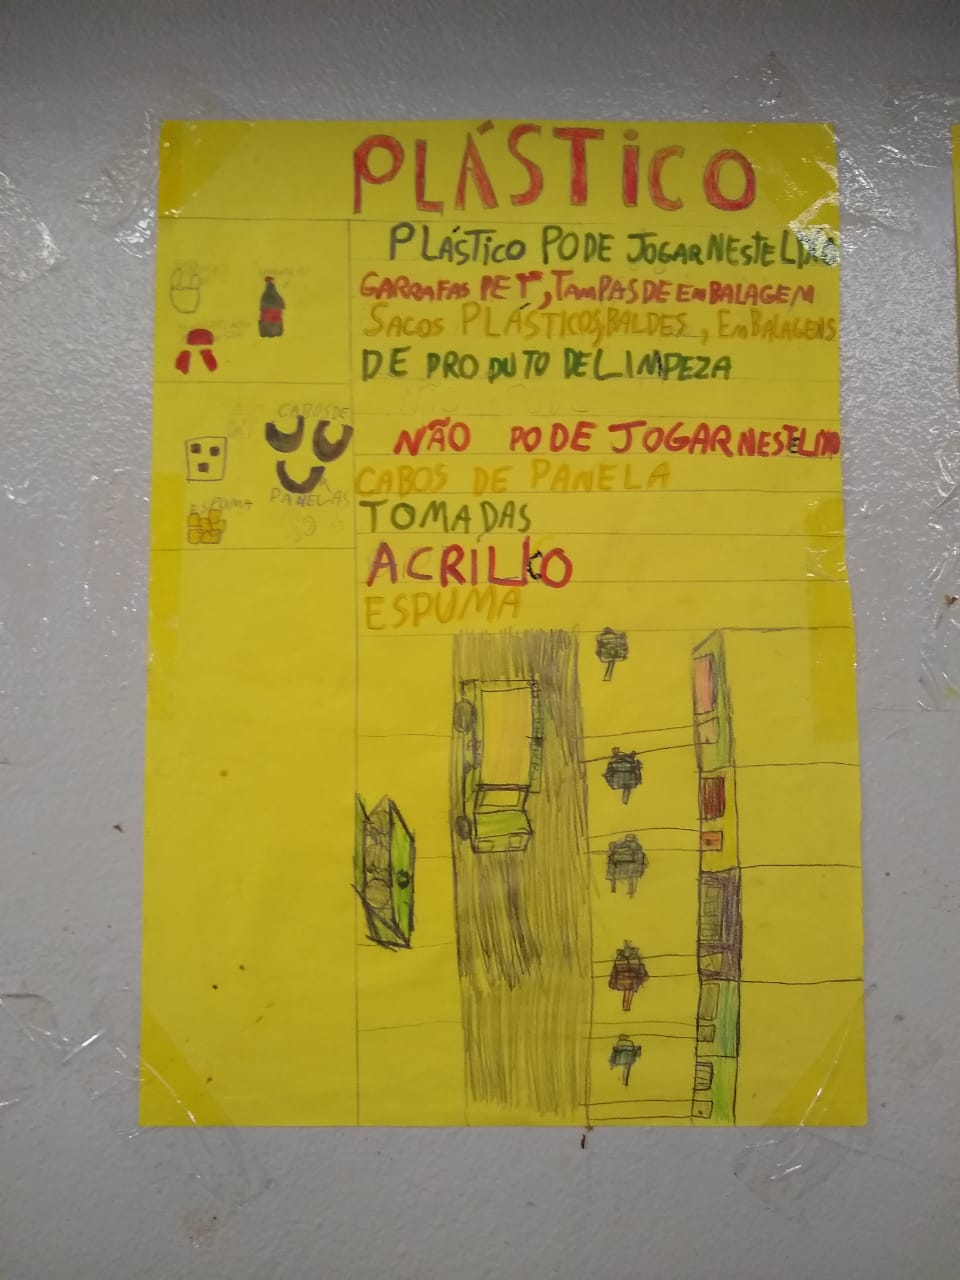 PLÁSTICO
PLÁSTICO PODE JOGAR NESTE LIXO
GARRAFAS PET, TAMPAS DE EMBALAGEM
SACOS PLÁSTICOS, BALDES, EMBALAGENS
DE PRODUTO DE LIMPEZA
NÃO PODE JOGAR NESTE LIXO
CABOS DE
PANELAS
ESPUMA
CABOS DE PANELA
TOMADAS
ACRILICO
ESPUMA